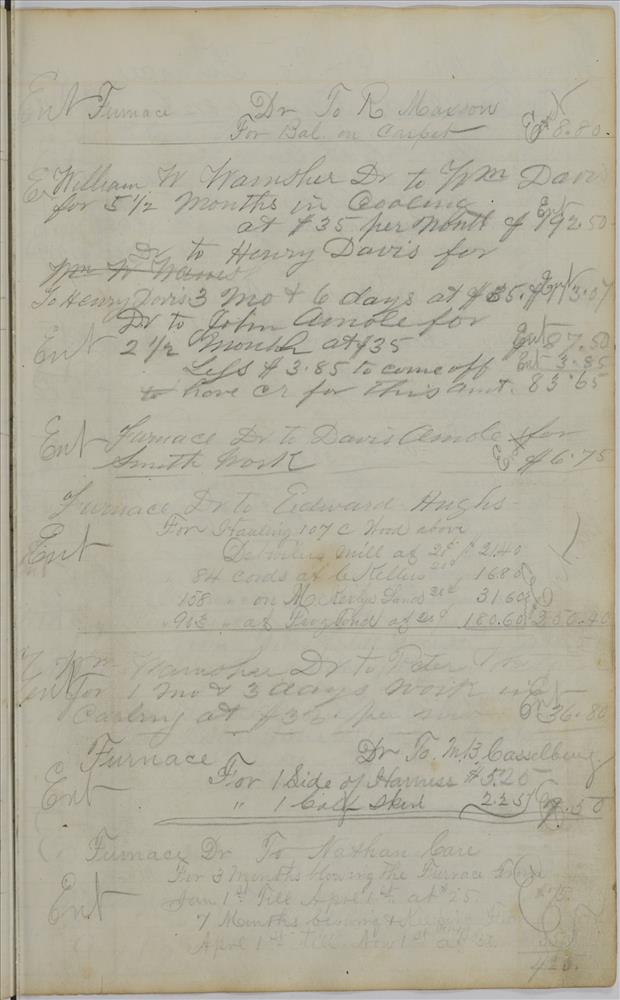 Ent Furnace Dr To R Maxson
For Bal. on Carpet Ent $8.80.
Ent William W Wamsher Dr to Wm Davis
for 5 1/2 Months in Coaling
at $35 per Month $ Ent 192.50
Dr to Henry Davis for
Wm W Wams
To Henry Davis 3 mo & 6 days at $35. Ent
Dr to John Amole for
Ent 2 1/2 Month at $35 Ent 87.50
Less $3.85 to come off Ent 3.85
to have cr for this amt. 83.65
Ent Furnace Dr to Davis Amole for
Smith Work Ent $6.75
Furnace Dr to Edward Hughs
For Hauling 107 C Wood above
Ent mill at 20c $21.40
84 cords at Kellers 20c 16.80
158 " on Lands 20c 31.60
903 " at at 20c 180.60 250.40
Wm Wamsher Dr to Peter
Ent for 1 mo & 3 days work in
Coaling at per mo Ent 36.80
Furnace Dr To M.B. Casselberry
Ent For 1 Side of Harness $5.25
" 1 Calf Skin 2.25 Ent 7.50
Furnace Dr To Nathan Care
For 3 Months blowing the Furnace from
Jan 1st Till Apre 1st at $25. $75
Ent 7 Months &
Apre 1st till Nov 1st at
425.